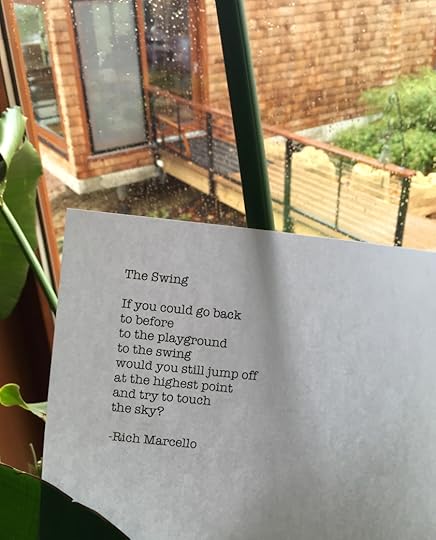 The Swing
If you could go back
to before
to the playground
to the swing
would you still jump off
at the highest point
and try to touch
the sky?
-Rich Marcello